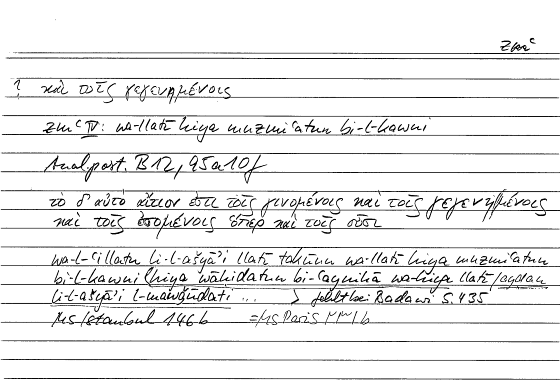 zmᶜ
? καὶ τοῖς γεγενημένοις
zmᶜ IV: wa-llatī hiya muzmiᶜatun bi-l-kawni
Anal. post. B 12, 95a10f
τὸ δ' αὐτὸ αἴτιόν ἐστι τοῖς γινομένοις καὶ τοῖς γεγενημένοις
καὶ τοῖς ἐσομένοις ὅπερ καὶ τοῖς οὖσι
wa-l-ᶜillatu li-l-ašyāʾi llatī takūnu wa-llatī hiya muzmiᶜatun
bi-l-kawni hiya wāḥidatun bi-ᶜaynihā wa-hiya llatī / ayḍan
li-l-ašyāʾi l-mawǧūdati ... > fehlt bei Badawi S. 435
Ms Istanbul 146b = Ms Paris